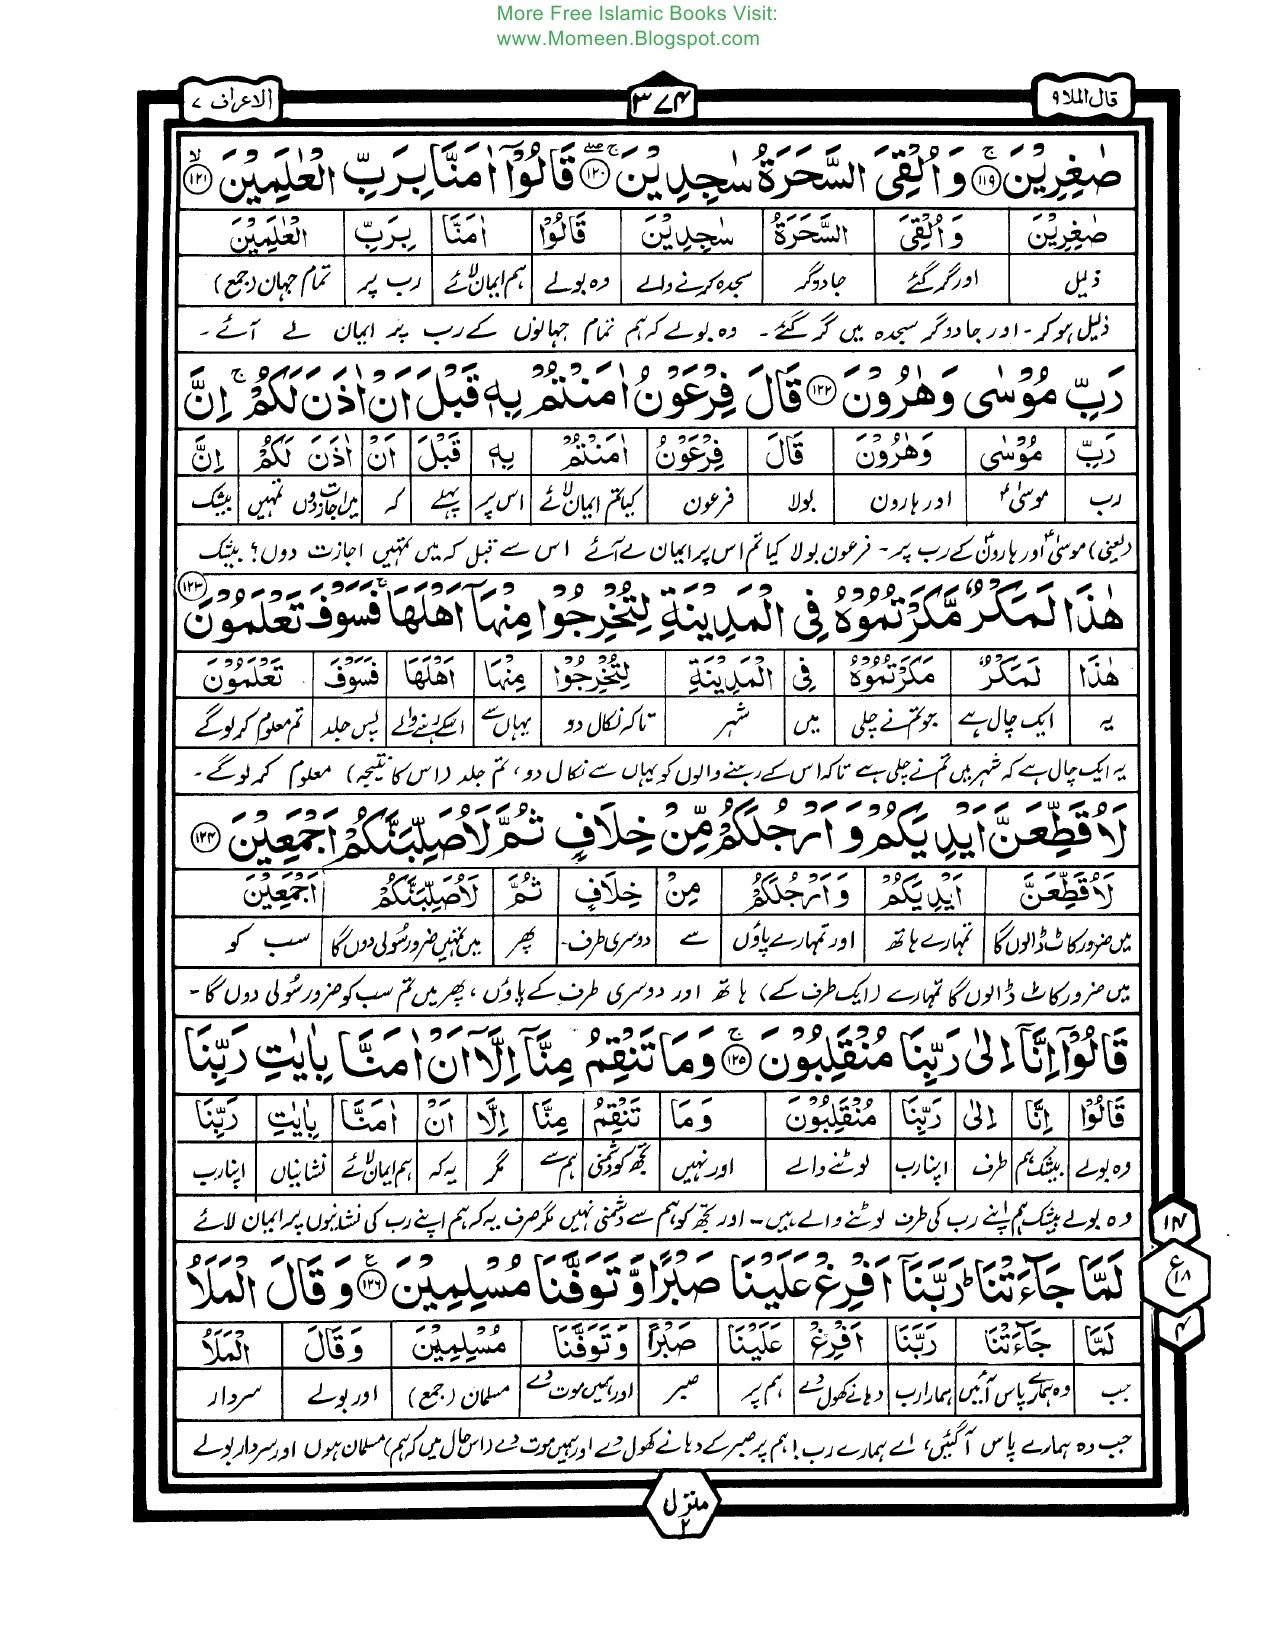 More Free Islamic Books Visit:
www.Momeen.Blogspot.com
قال الملا ۹
۳۷۴
الاعراف ۷
صٰغِرِیْنَ ۚ﴿۱۱۹﴾ وَ اُلْقِیَ السَّحَرَةُ سٰجِدِیْنَ ۚۖ﴿۱۲۰﴾ قَالُوْۤا اٰمَنَّا بِرَبِّ الْعٰلَمِیْنَ ۙ﴿۱۲۱﴾
صٰغِرِیْنَ وَ اُلْقِیَ السَّحَرَةُ سٰجِدِیْنَ قَالُوْۤا اٰمَنَّا بِرَبِّ الْعٰلَمِیْنَ
ذلیل اور گر گئے جادوگر سجدہ کرنے والے وہ بولے ہم ایمان لائے رب پر تمام جہان (جمع)
ذلیل ہو کر۔ اور جادوگر سجدہ میں گر گئے۔ وہ بولے کہ ہم تمام جہانوں کے رب پر ایمان لے آئے۔
رَبِّ مُوْسٰی وَ هٰرُوْنَ ﴿۱۲۲﴾ قَالَ فِرْعَوْنُ اٰمَنْتُمْ بِهٖ قَبْلَ اَنْ اٰذَنَ لَكُمْ ۚ اِنَّ
رَبِّ مُوْسٰی وَهٰرُوْنَ قَالَ فِرْعَوْنُ اٰمَنْتُمْ بِهٖ قَبْلَ اَنْ اٰذَنَ لَكُمْ اِنَّ
رب موسیٰؑ اور ہارون بولا فرعون کیا تم ایمان لائے اس پر پہلے کہ میں اجازت دوں تمہیں بیشک
(یعنی) موسیٰؑ اور ہارونؑ کے رب پر۔ فرعون بولا کیا تم اس پر ایمان لے آئے اس سے قبل کہ میں تمہیں اجازت دوں؟ بیشک
هٰذَا لَمَكْرٌ مَّكَرْتُمُوْهُ فِی الْمَدِیْنَةِ لِتُخْرِجُوْا مِنْهَاۤ اَهْلَهَا ۚ فَسَوْفَ تَعْلَمُوْنَ ﴿۱۲۳﴾
هٰذَا لَمَكْرٌ مَكَرْتُمُوْهُ فِی الْمَدِیْنَةِ لِتُخْرِجُوْا مِنْهَا اَهْلَهَا فَسَوْفَ تَعْلَمُوْنَ
یہ ایک چال ہے جو تم نے چلی میں شہر تاکہ نکال دو یہاں سے اسکے رہنے والے پس جلد تم معلوم کر لوگے
یہ ایک چال ہے کہ شہر میں تم نے چلی ہے تاکہ اس کے رہنے والوں کو یہاں سے نکال دو، تم جلد (اس کا نتیجہ) معلوم کر لوگے۔
لَاُقَطِّعَنَّ اَیْدِیَكُمْ وَ اَرْجُلَكُمْ مِّنْ خِلَافٍ ثُمَّ لَاُصَلِّبَنَّكُمْ اَجْمَعِیْنَ ﴿۱۲۴﴾
لَاُقَطِّعَنَّ اَیْدِیَكُمْ وَ اَرْجُلَكُمْ مِنْ خِلَافٍ ثُمَّ لَاُصَلِّبَنَّكُمْ اَجْمَعِیْنَ
میں ضرور کاٹ ڈالوں گا تمہارے ہاتھ اور تمہارے پاؤں سے دوسری طرف- پھر میں تمہیں ضرور سُولی دوں گا سب کو
میں ضرور کاٹ ڈالوں گا تمہارے (ایک طرف کے) ہاتھ اور دوسری طرف کے پاؤں، پھر میں تم سب کو ضرور سُولی دوں گا۔
قَالُوْۤا اِنَّاۤ اِلٰی رَبِّنَا مُنْقَلِبُوْنَ ۚ﴿۱۲۵﴾ وَ مَا تَنْقِمُ مِنَّاۤ اِلَّاۤ اَنْ اٰمَنَّا بِاٰیٰتِ رَبِّنَا
قَالُوْۤا اِنَّا اِلٰی رَبِّنَا مُنْقَلِبُوْنَ وَمَا تَنْقِمُ مِنَّا اِلَّا اَنْ اٰمَنَّا بِاٰیٰتِ رَبِّنَا
وہ بولے بیشک ہم طرف اپنا رب لوٹنے والے اور نہیں تجھ کو دشمنی ہم سے مگر یہ کہ ہم ایمان لائے نشانیاں اپنا رب
وہ بولے بیشک ہم اپنے رب کی طرف لوٹنے والے ہیں۔ اور تجھ کو ہم سے دشمنی نہیں مگر صرف یہ کہ ہم اپنے رب کی نشانیوں پر ایمان لائے
لَمَّا جَآءَتْنَا ؕ رَبَّنَاۤ اَفْرِغْ عَلَیْنَا صَبْرًا وَّ تَوَفَّنَا مُسْلِمِیْنَ ﴿۱۲۶﴾ وَ قَالَ الْمَلَاُ
لَمَّا جَآءَتْنَا رَبَّنَا اَفْرِغْ عَلَیْنَا صَبْرًا وَ تَوَفَّنَا مُسْلِمِیْنَ وَقَالَ الْمَلَاُ
جب وہ ہمارے پاس آئیں ہمارا رب دہانے کھول دے ہم پر صبر اور ہمیں موت دے مسلمان (جمع) اور بولے سردار
جب وہ ہمارے پاس آ گئیں، اے ہمارے رب! ہم پر صبر کے دہانے کھول دے اور ہمیں موت دے (اس حال میں کہ ہم) مسلمان ہوں اور سردار بولے
ع
۱۸
۴
منزل ۲